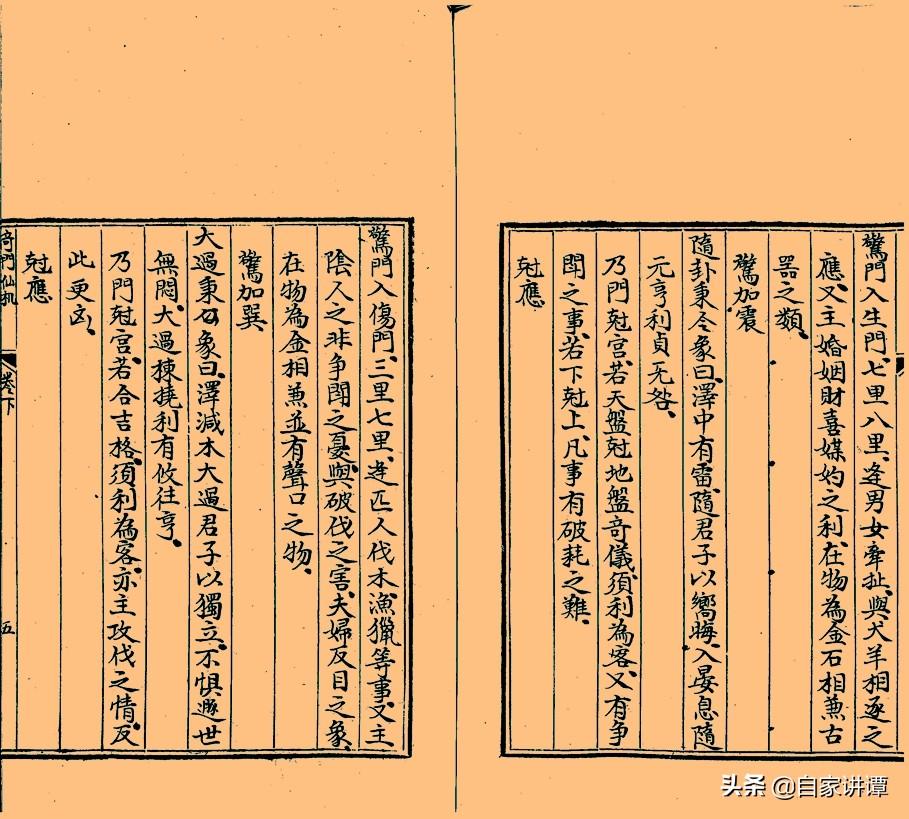 驚門入生門、七里八里、逢男女牽扯、與犬羊相逐之
應、又主婚姻財喜媒妁之利、在物為金石相兼古
器之類、
驚加震
隨卦東令象曰、澤中有雷隨、君子以嚮晦入宴息、隨
元亨利貞无咎、
乃門尅宮、若天盤尅地盤奇儀、須利為客、又有争
鬪之事、若下尅上、凡事有破耗之難、
尅應
驚門入傷門、三里七里、逢匠人伐木漁獵等事、又主
陰人之非争鬪之憂、與破伐之害、夫婦反目之象、
在物為金相兼並有聲口之物、
驚加巽
大過東公象曰、澤滅木大過君子以獨立、不惧遯世
無悶、大過棟撓利有攸往亨、
乃門尅宮、若合吉格、須利為客、亦主攻伐之情、反
此更凶、
尅應
奇門仙机
卷下
五
头条 @自家讲谭